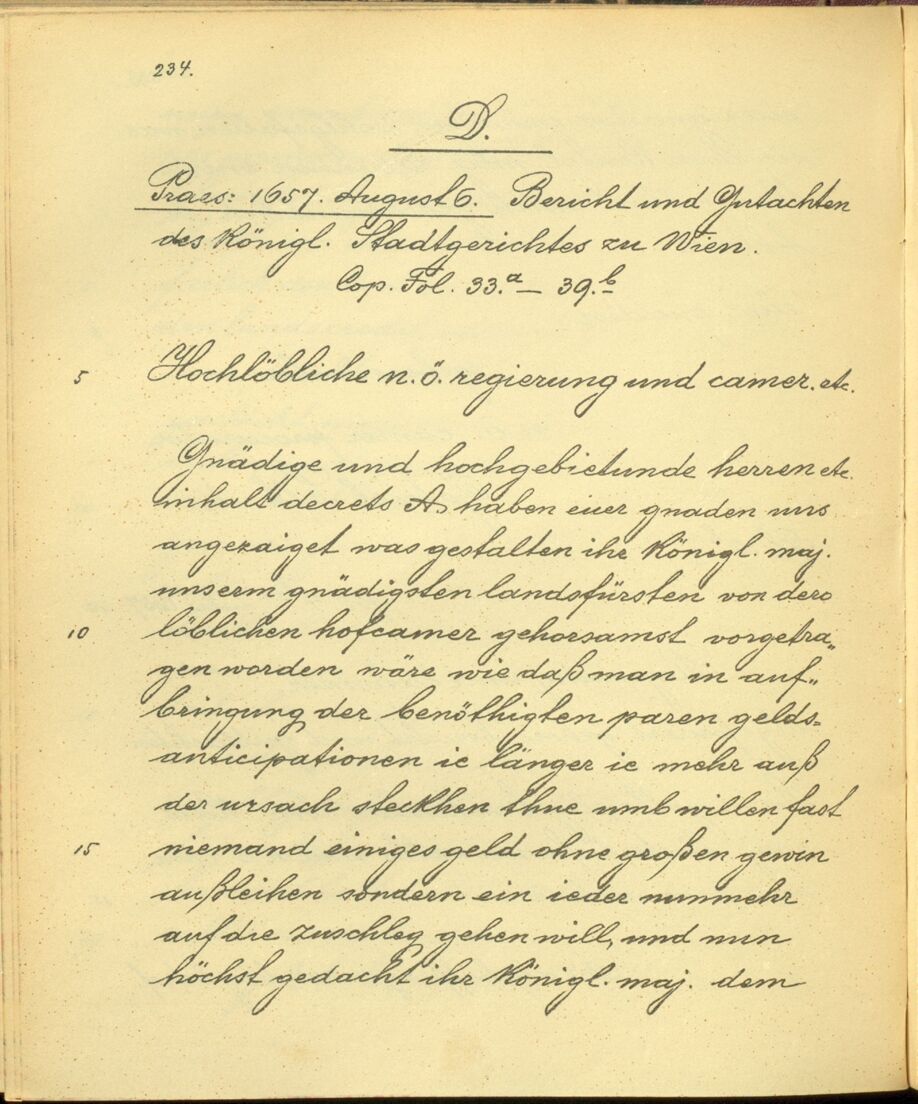 234.
D.
Praes: 1657. August 6. Bericht und Gutachten
des Königl. Stadtgerichtes zu Wien.
Cop. Fol. 33.a — 39.b
5 Hochlöbliche n. ö. regierung und camer. etc.
Gnädige und hochgebietunde herren etc.
inhalt decrets A. haben euer gnaden uns
angezaiget was gestalten ihr Königl. maj.
unserm gnädigsten landsfürsten von dero
10 löblichen hofcamer gehorsamst vorgetra„
gen worden wäre wie daß man in auf„
bringung der benöthigten paren gelds=
anticipationen ie länger ie mehr auß
der ursach steckhen thue umbwillen fast
15 niemand einiges geld ohne großen gewin
außleihen sondern ein ieder nunmehr
auf die zuschleg gehen will, und nun
höchst gedacht ihr Königl. maj. dem